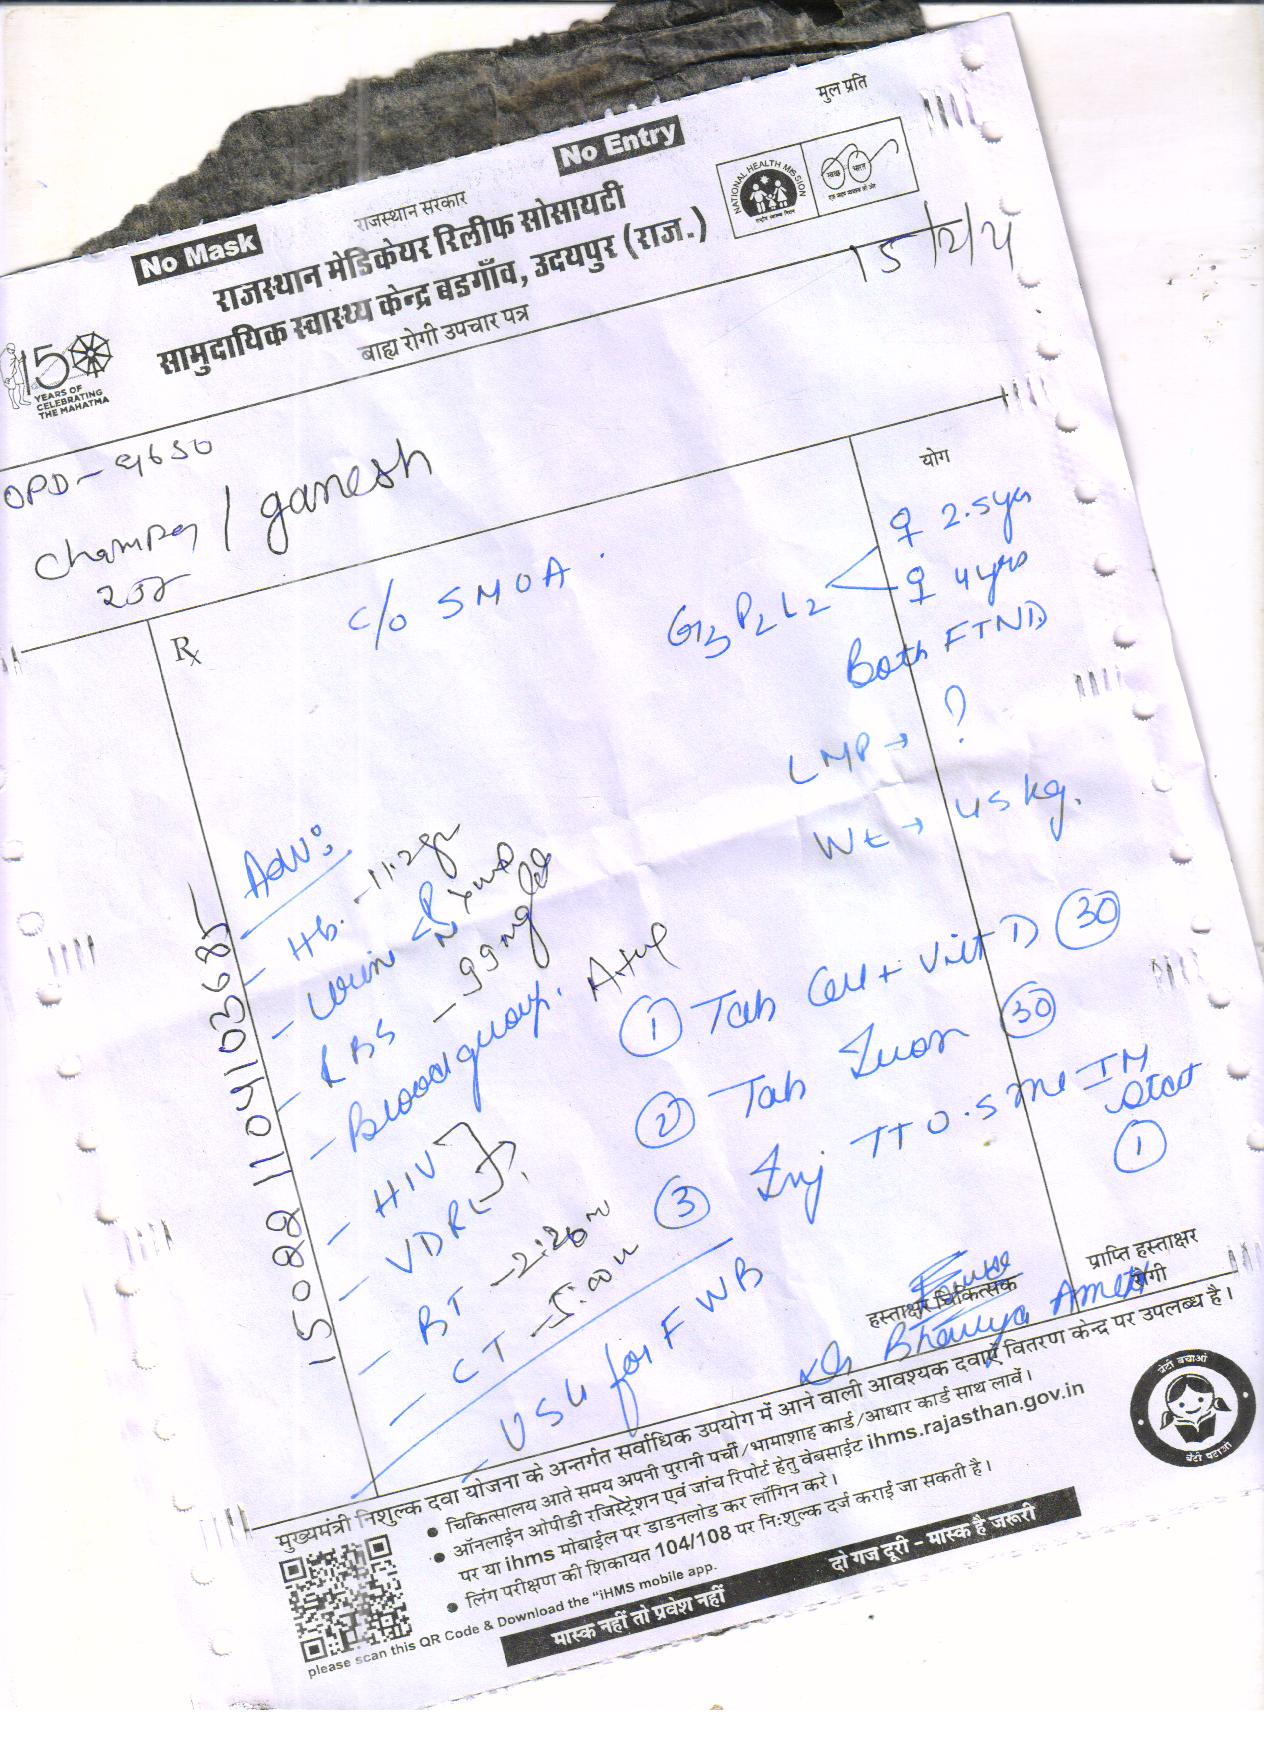 मुल प्रति
No Entry
No Mask
राजस्थान सरकार
राजस्थान मेडिकेयर रिलीफ सोसायटी
सामुदायिक स्वास्थ्य केन्द्र बडगाँव, उदयपुर (राज.)
बाह्य रोगी उपचार पत्र
NATIONAL HEALTH MISSION
राष्ट्रीय स्वास्थ्य मिशन
स्वच्छ भारत
एक कदम स्वच्छता की ओर
150
YEARS OF
CELEBRATING
THE MAHATMA
OPD -
/ ganesh
योग
Rx
C/O 5 MOA
G3 P2 L2
♀ 2.5yrs
♀ 4yrs
Both FTND
LMP → ?
Wt → 45 kg.
Adv:
- Hb. - 11.2gm
- Urin
- RBS - 99mg/dl
- Blood group. A+ve
- HIV
- VDRL
- BT -
- CT -
- USG for FWB
① Tab Cal + Vit D 30
② Tab Iron 30
③ Inj TT 0.5 ml IM
Stat
1
हस्ताक्षर चिकित्सक
Dr Bhavya Ameta
प्राप्ति हस्ताक्षर
रोगी
मुख्यमंत्री निशुल्क दवा योजना के अन्तर्गत सर्वाधिक उपयोग में आने वाली आवश्यक दवाऐं वितरण केन्द्र पर उपलब्ध है।
• चिकित्सालय आते समय अपनी पुरानी पर्ची/भामाशाह कार्ड/आधार कार्ड साथ लावें।
• ऑनलाईन ओपीडी रजिस्ट्रेशन एवं जांच रिपोर्ट हेतु वेबसाईट ihms.rajasthan.gov.in
पर या ihms मोबाईल पर डाडनलोड कर लॉगिन करे।
• लिंग परीक्षण की शिकायत 104/108 पर नि:शुल्क दर्ज कराई जा सकती है।
please scan this QR Code & Download the "iHMS mobile app.
मास्क नहीं तो प्रवेश नहीं
दो गज दूरी - मास्क है जरूरी
बेटी बचाओ
बेटी पढाओ